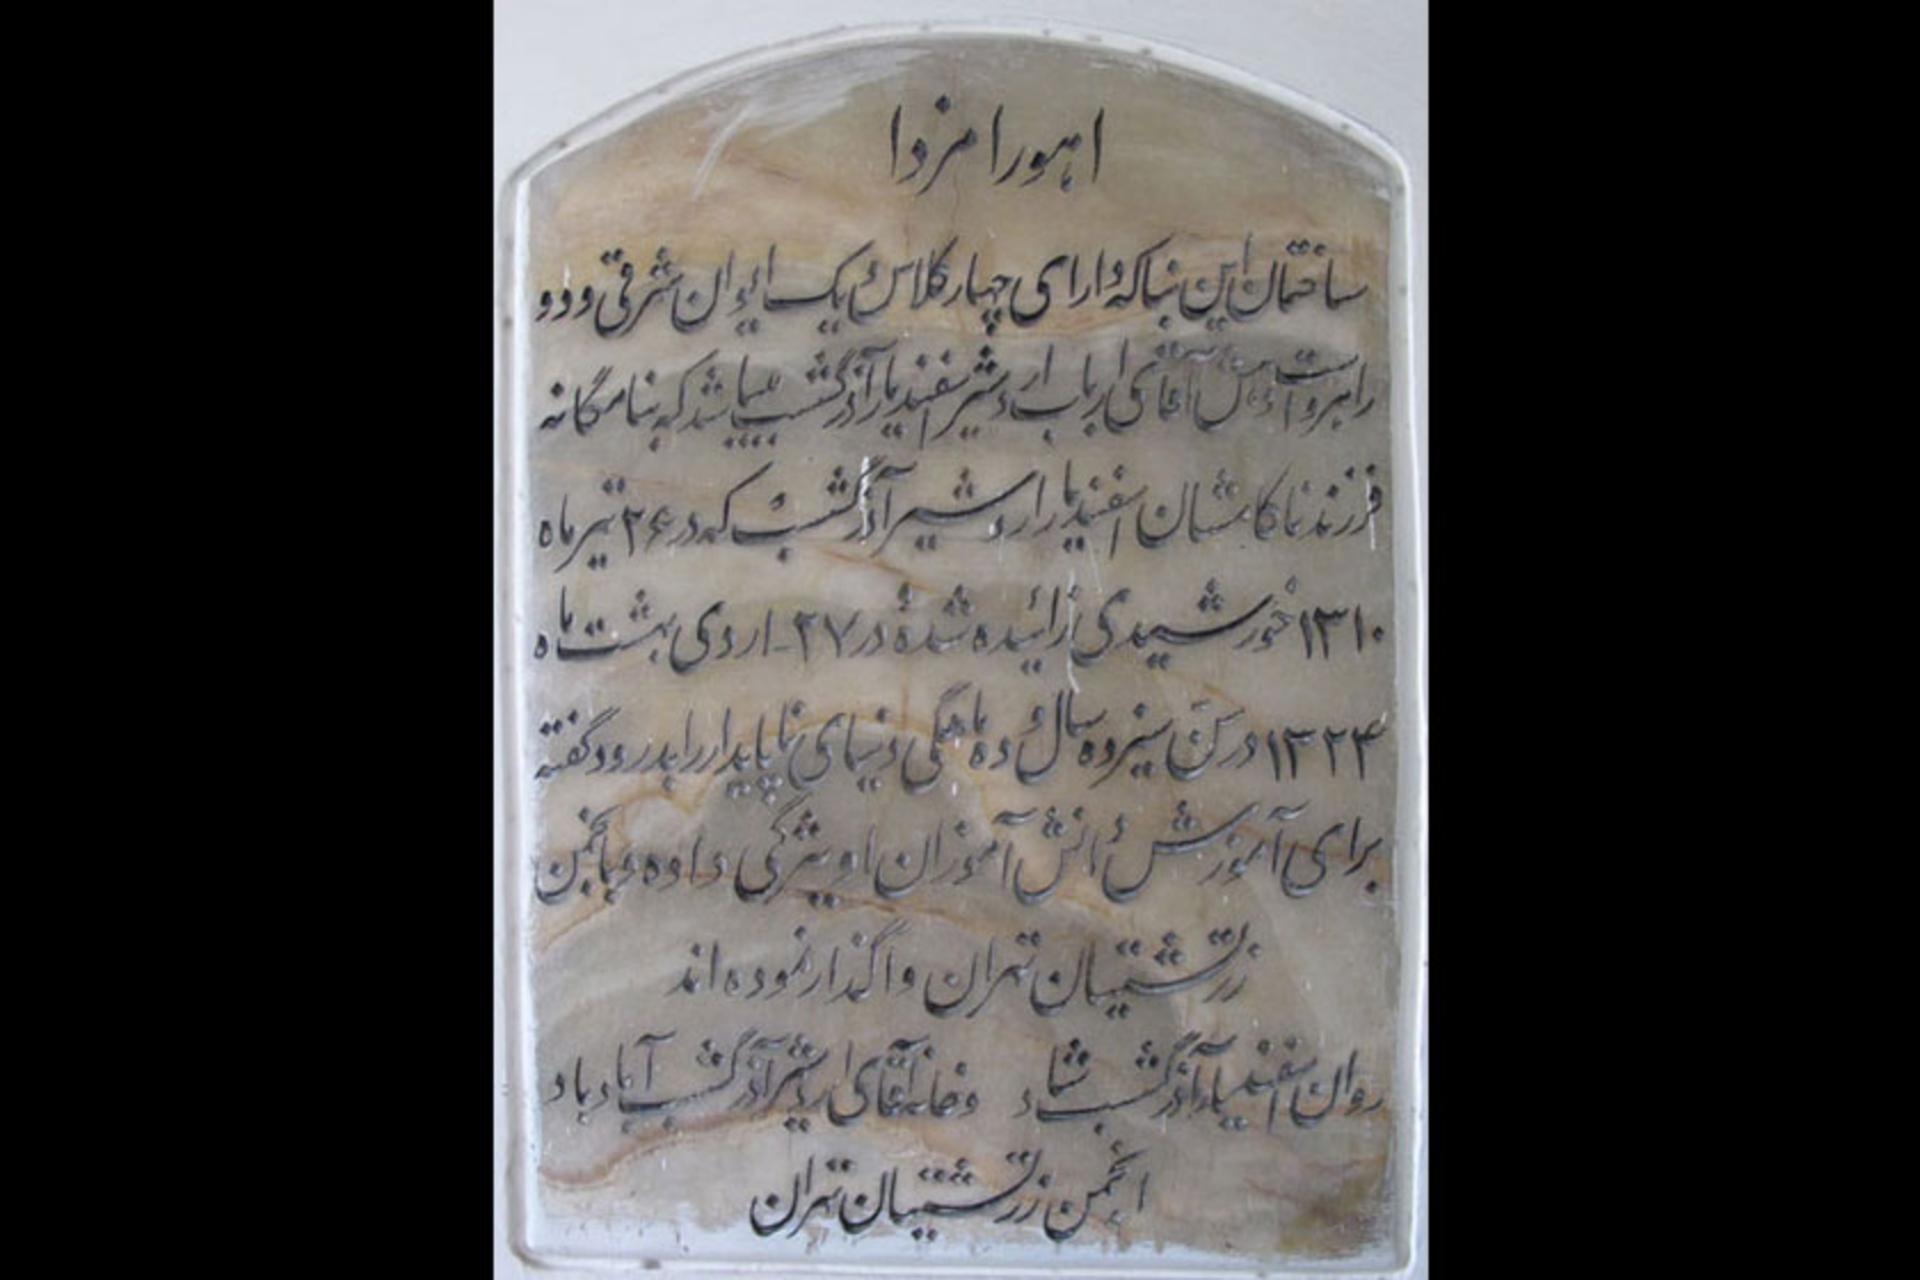 اهورا مزدا
ساختمان این بنا که دارای چهار کلاس و یک ایوان شرقی و دو
راهرو است دهش آقای ارباب اردشیر اسفندیار آذرگشسب میباشد که بنامگانه
فرزند ناکامشان اسفندیار اردشیر آذرگشسب که در ۲۶ تیر ماه
۱۳۱۰ خورشیدی زائیده شده و در ۲۷-اردی بهشت ماه
۱۳۲۴ در سن سیزده سال و ده ماهگی دنیای ناپایدار را بدرود گفته
برای آموزش دانش آموزان او یژگی داده و بانجمن
زرتشتیان تهران واگذار نموده اند
روان اسفندیار آذرگشسب شاد و خانه آقای اردشیر آذرگشسب آباد باد
انجمن زرتشتیان تهران